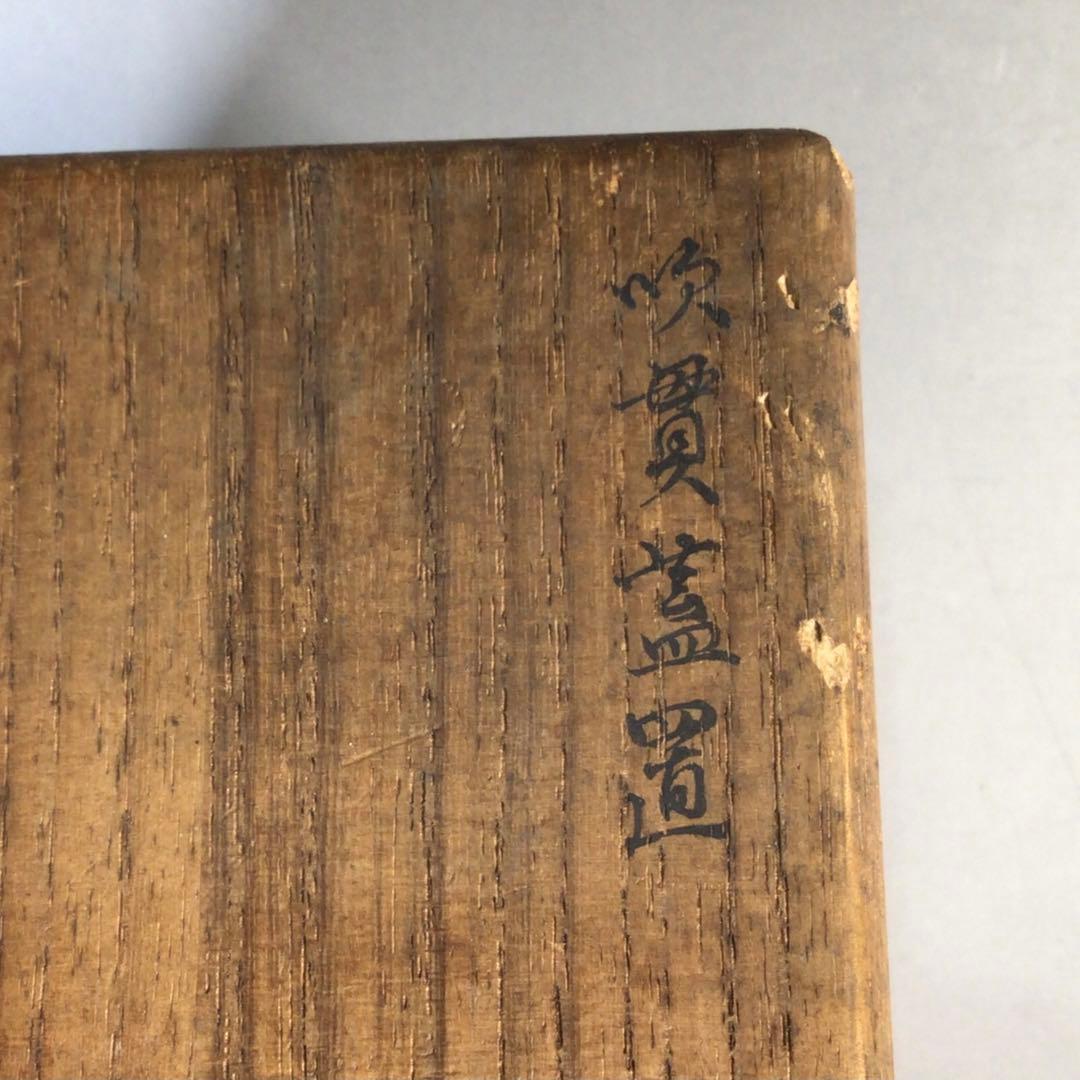 吹貫蓋置